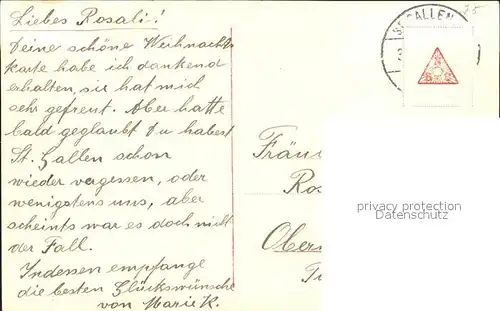 Liebes Rosali!
Deine schöne Weihnachts
karte habe ich dankend
erhalten, sie hat mich
sehr gefreut. Aber hatte
bald geglaubt Du habest
St. Gallen schon
wieder vergessen, oder
wenigstens uns, aber
scheints war es doch nicht
der Fall.
Indessen empfange
die besten Glückswünsche
von Marie K.
ST. GALLEN
Fräu
Ros
Obers
privacy protection
Datenschutz